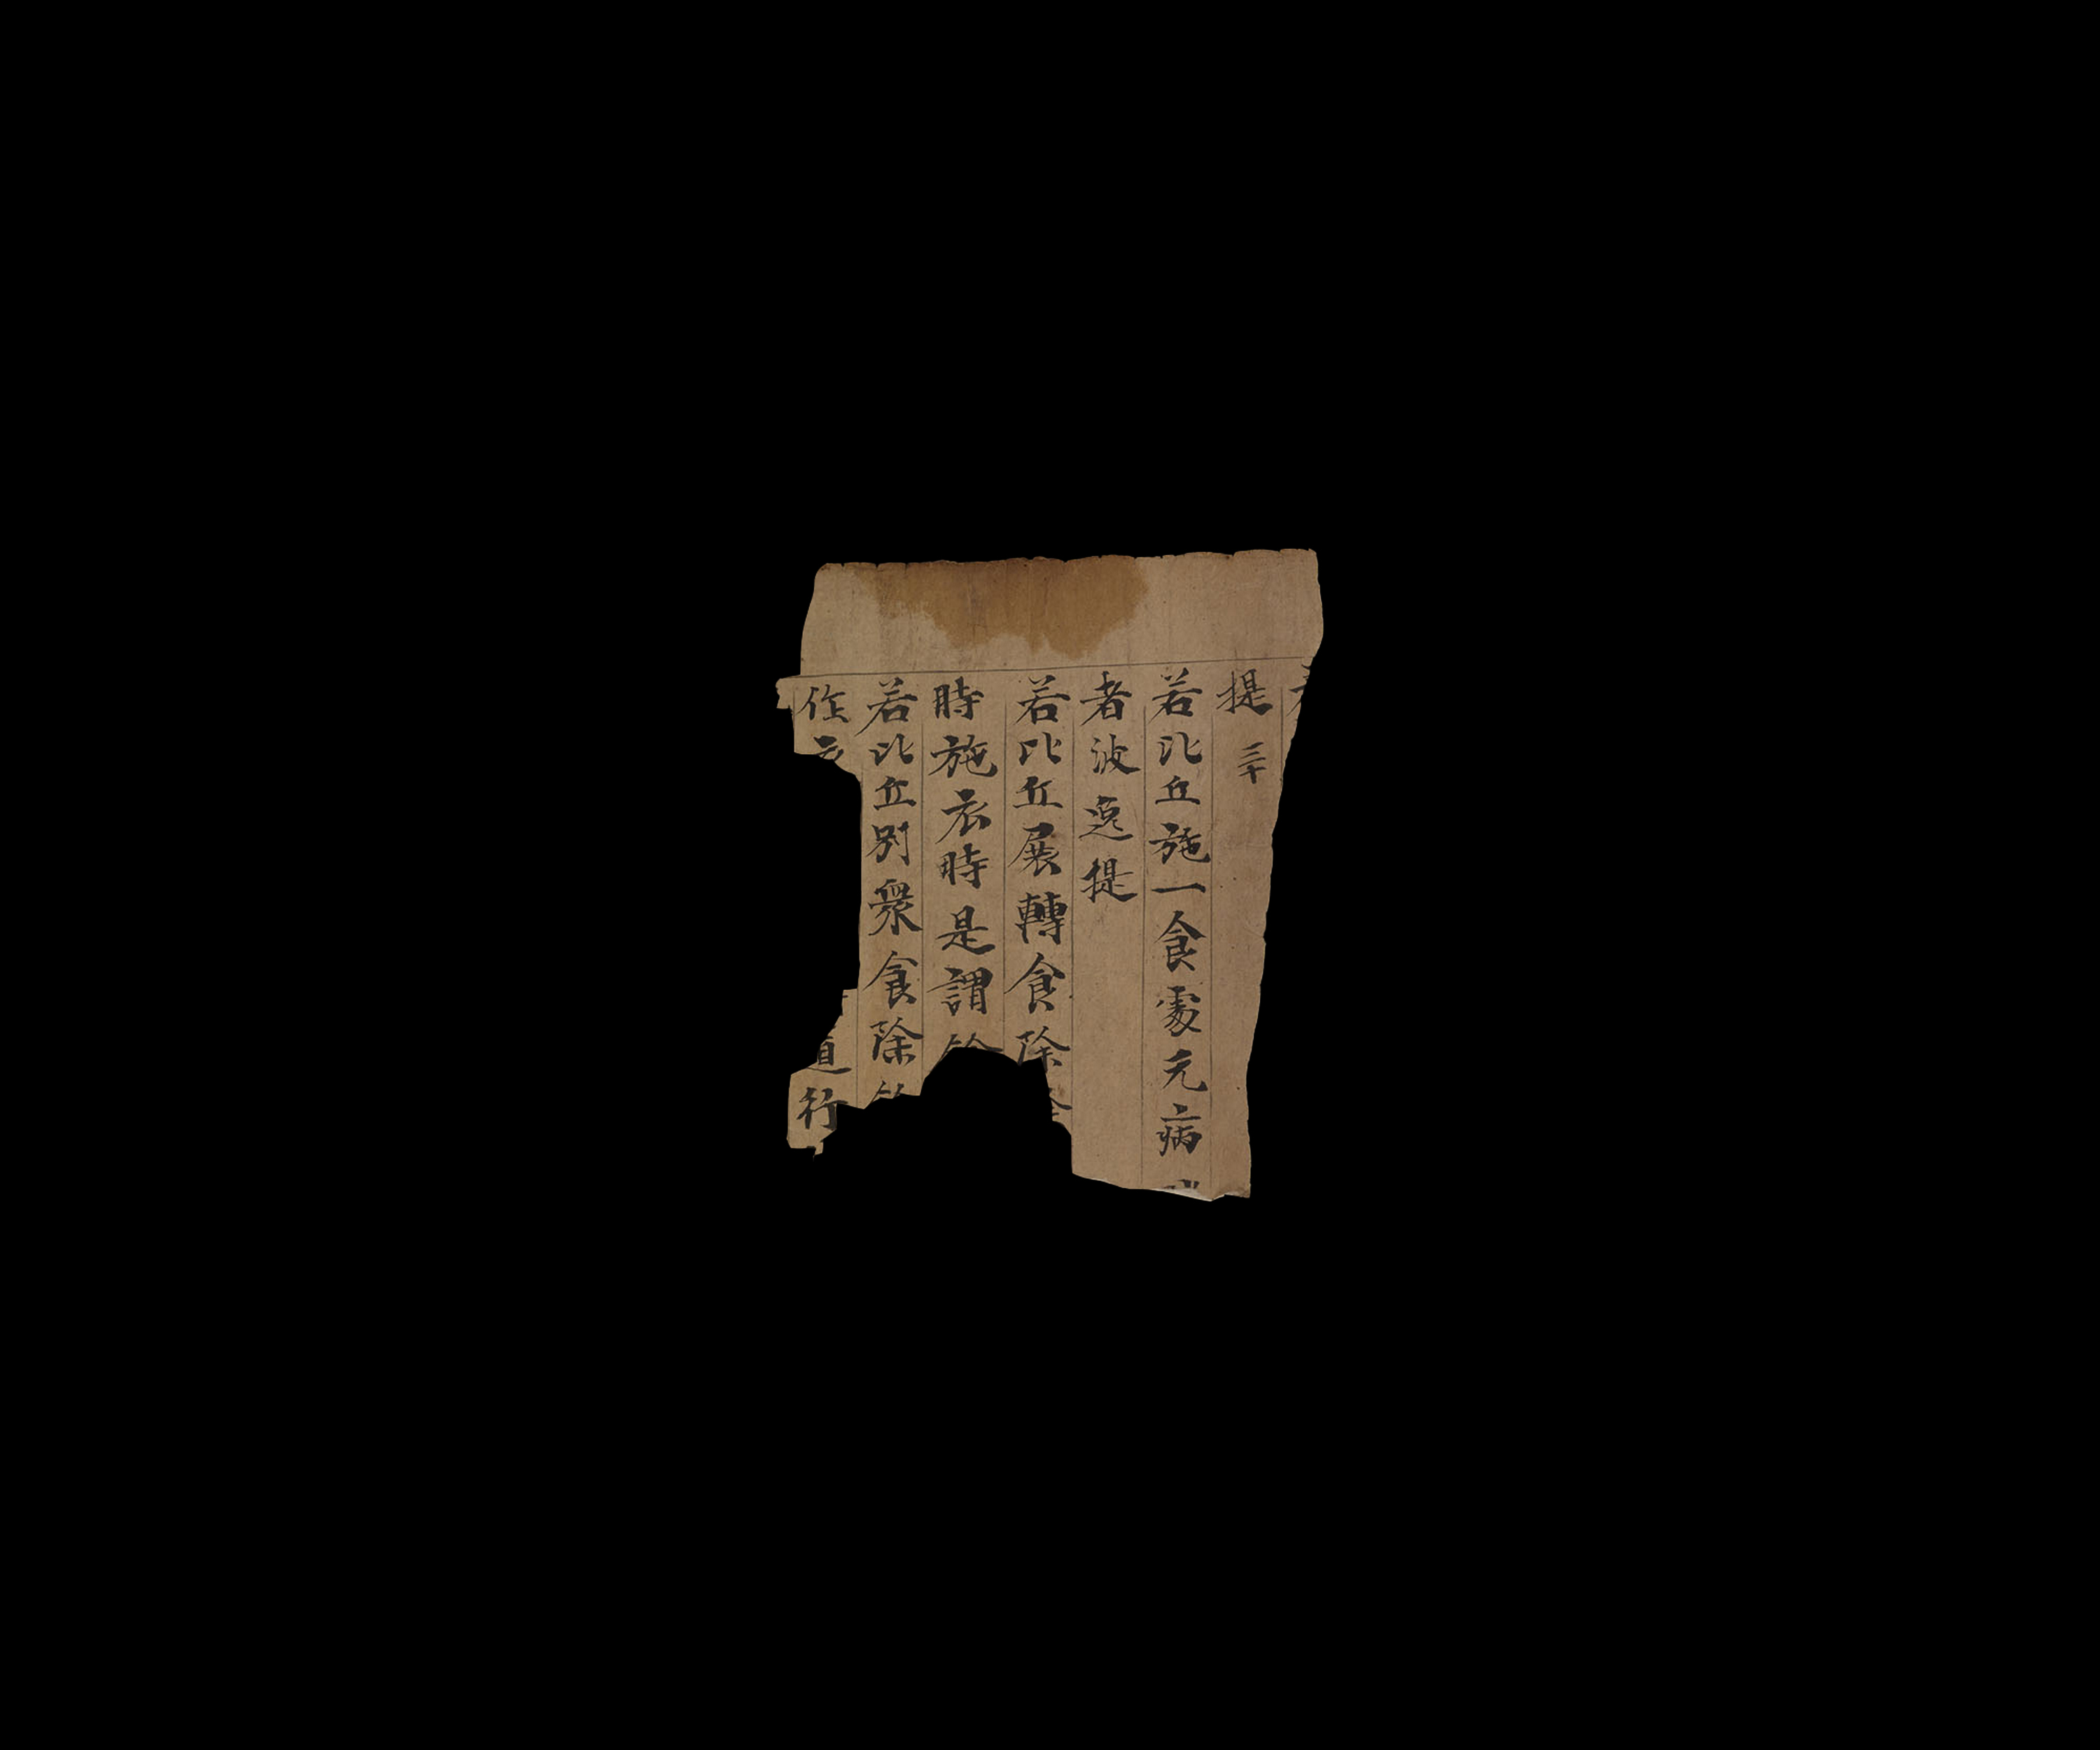 提 三十
若比丘施一食處无病
者波逸提
若比丘展轉食除
時施衣時是謂
若比丘別衆食除
作
道行